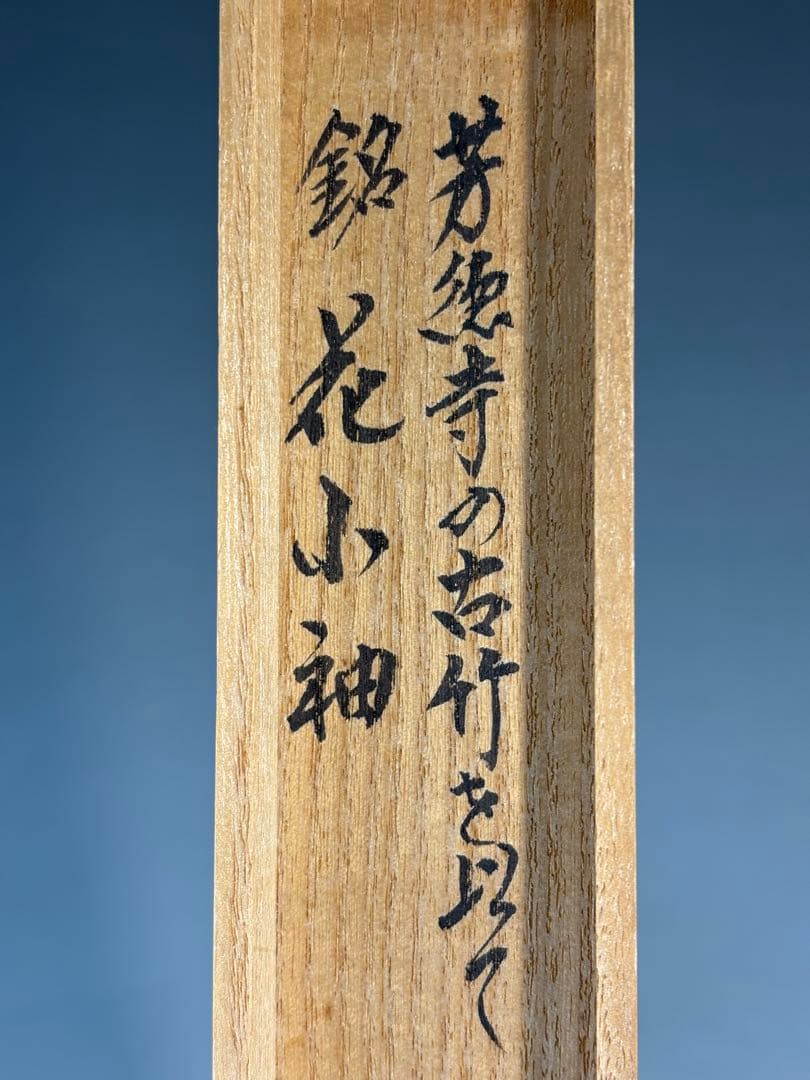 芳徳寺の古竹を以て
銘 花小袖